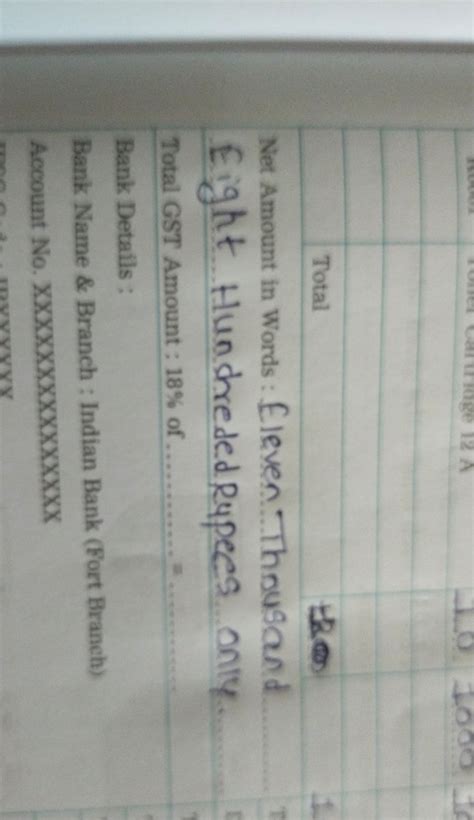 Toner Cartridge 12 A 10 1000
Total
Net Amount in Words : Eleven Thousand
Eight Hundreded Rupees only
Total GST Amount : 18% of ............ = ............
Bank Details :
Bank Name & Branch : Indian Bank (Fort Branch)
Account No. XXXXXXXXXXXXXXX